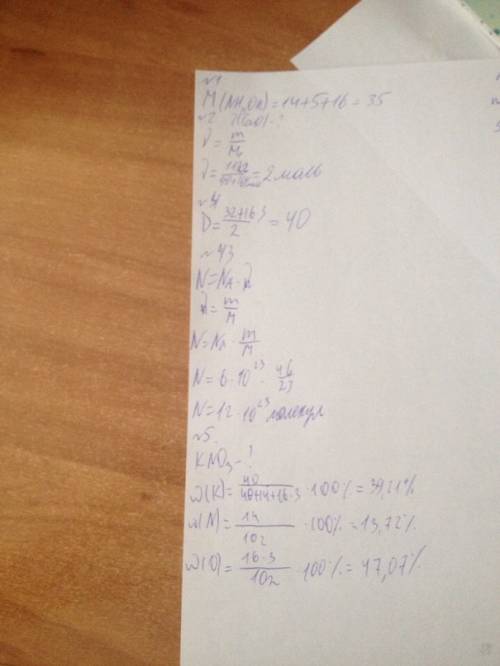 №1
M(NH₄OH)=14+5+16=35
№2 -?
ν=m/Mr
ν= =2 моль
№4
D=32+16·3/2=40
№3
N=NA·ν
ν=m/M
N=NA·m/M
N=6·10²³·46/23
N=12·10²³ молекул
№5.
KNO₃-?
w(K)=40/40+14+16·3·100%=39,21%
w(N)=14/102·100%=13,72%
w(O)=16·3/102·100%=47,07%